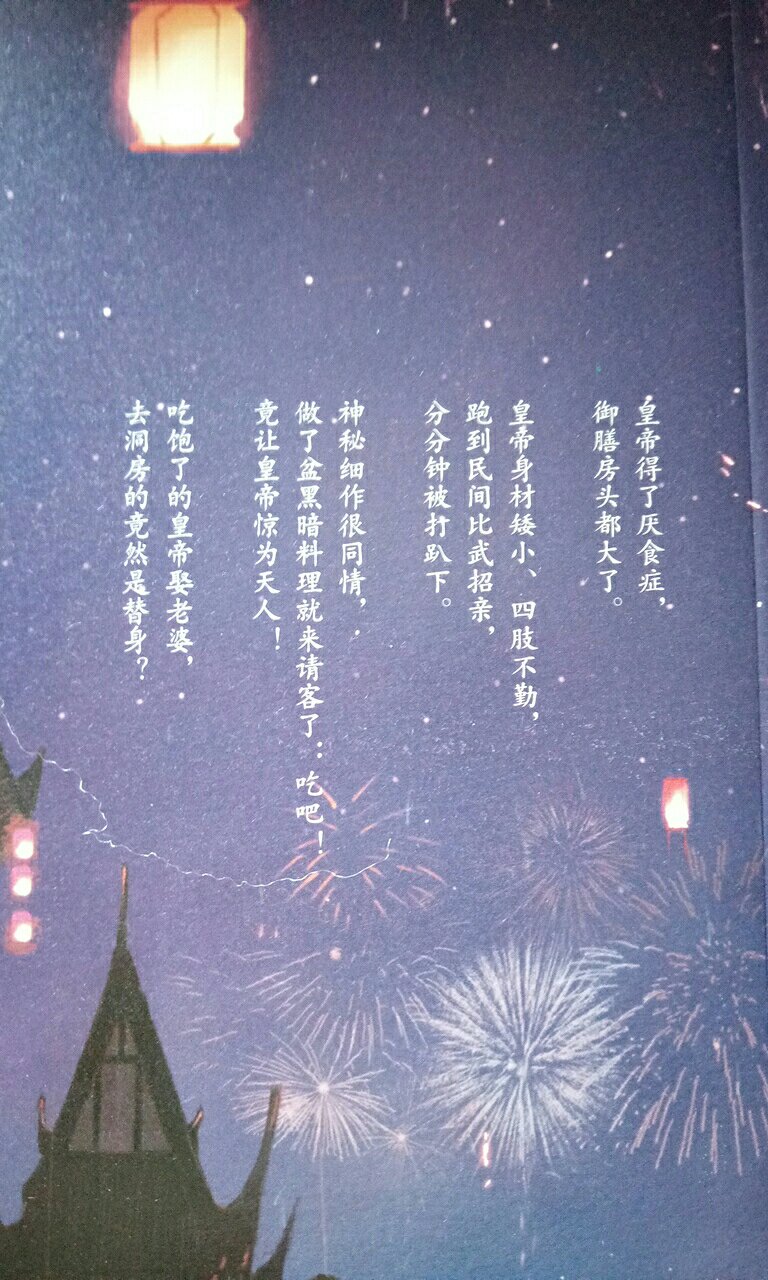 皇帝得了厌食症，
御膳房头都大了。
皇帝身材矮小、四肢不勤，
跑到民间比武招亲，
分分钟被打趴下。
神秘细作很同情，
做了盆黑暗料理就来请客了：吃吧！
竟让皇帝惊为天人！
吃饱了的皇帝娶老婆，
去洞房的竟然是替身？